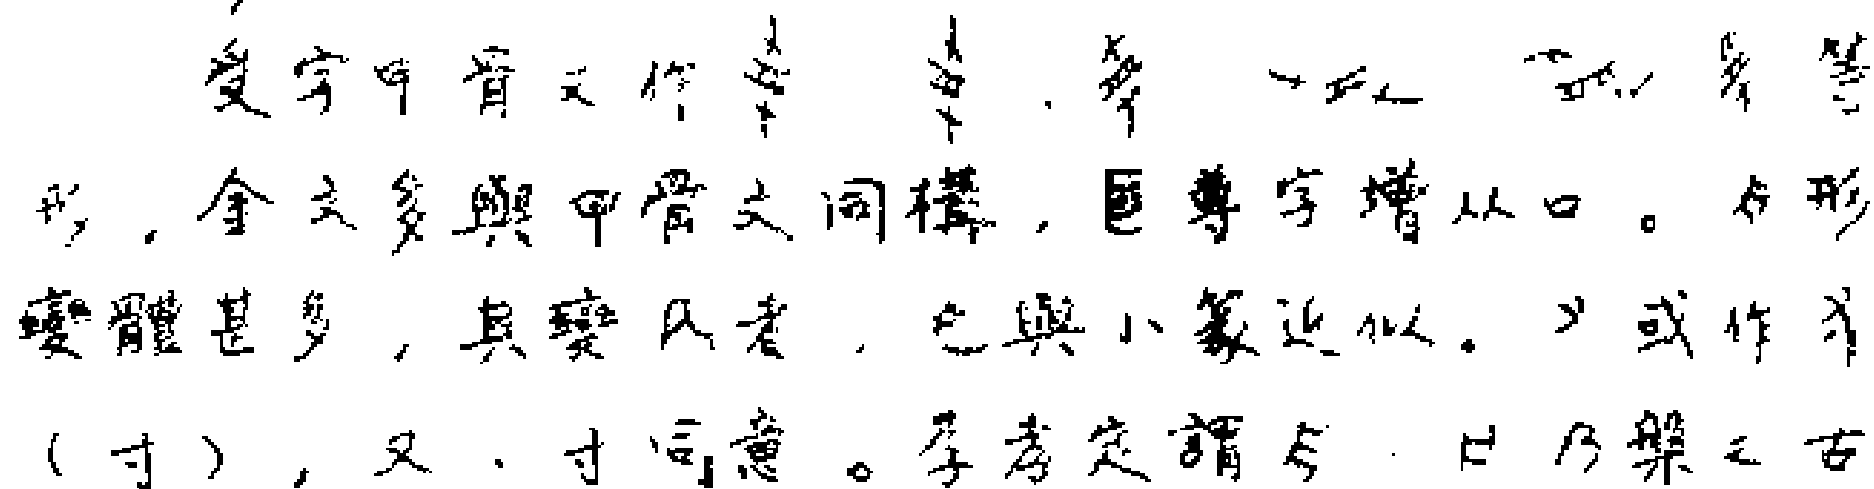 受字甲骨文作 、 、 等
形，金文多與甲骨文同構，尊字增从口。形
變體甚多，其變爲者，已與小篆近似。又或作
（寸），又、寸同意。李孝定謂、乃槃之古